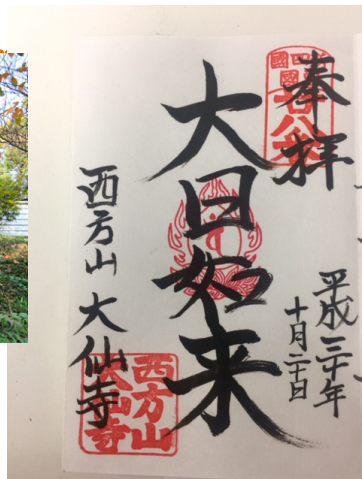 奉拝
平成三十年
十月二十日
大日如来
西方山 大仙寺
西方山
大仙寺